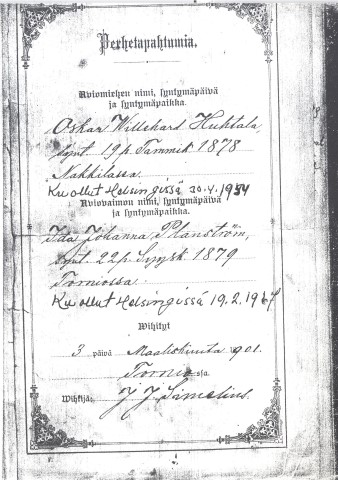 Perhetapahtumia.
Aviomiehen nimi, syntymäpäivä
ja syntymäpaikka.
Oskar Willehard Huhtala,
synt. 19 p. Tammik 1878
Nakkilassa
Kuollut Helsingissä 30.4.1934
Aviovaimon nimi, syntymäpäivä
ja syntymäpaikka.
Ida Johanna Planström,
synt. 22 p. Syysk. 1879
Torniossa.
Kuollut Helsingissä 19.2.1967
Wihityt
3 päivä Maaliskuuta 901.
Tornio ssa.
Wihkijä: J J Simelius.